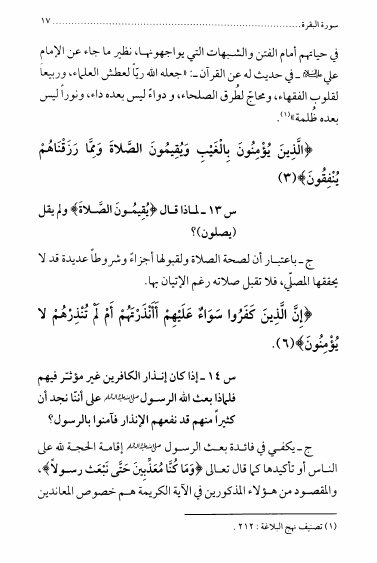 سورة البقرة ........................................................ ١٧
في حياتهم أمام الفتن والشبهات التي يواجهونها، نظير ما جاء عن الإمام
علي عليه السلام ـ في حديث له عن القرآن ـ: «جعله الله ريّاً لعطش العلماء، وربيعاً
لقلوب الفقهاء، ومحاجّ لطُرق الصلحاء، ودواءً ليس بعده داء، ونوراً ليس
بعده ظُلمة»(١).
﴿الَّذِينَ يُؤْمِنُونَ بِالْغَيْبِ وَيُقِيمُونَ الصَّلاةَ وَمِمَّا رَزَقْنَاهُمْ
يُنْفِقُونَ﴾(٣)
س ١٣ ـ لماذا قال ﴿يُقِيمُونَ الصَّلاةَ﴾ ولم يقل
(يصلون)؟
ج ـ باعتبار أن لصحة الصلاة ولقبولها أجزاءً وشروطاً عديدة قد لا
يحققها المصلّي، فلا تقبل صلاته رغم الإتيان بها.
﴿إِنَّ الَّذِينَ كَفَرُوا سَوَاءٌ عَلَيْهِمْ أَأَنْذَرْتَهُمْ أَمْ لَمْ تُنْذِرْهُمْ لا
يُؤْمِنُونَ﴾(٦).
س ١٤ ـ إذا كان إنذار الكافرين غير مؤثر فيهم
فلماذا بعث الله الرسول صلى الله عليه وآله وسلم على أننا نجد أن
كثيراً منهم قد نفعهم الإنذار فآمنوا بالرسول؟
ج ـ يكفي في فائدة بعث الرسول صلى الله عليه وآله وسلم إقامة الحجة لله على
الناس أو تأكيدها كما قال تعالى ﴿وَمَا كُنَّا مُعَذِّبِينَ حَتَّى نَبْعَثَ رسولاً﴾،
والمقصود من هؤلاء المذكورين في الآية الكريمة هم خصوص المعاندين
(١) تصنيف نهج البلاغة : ٢١٢ .